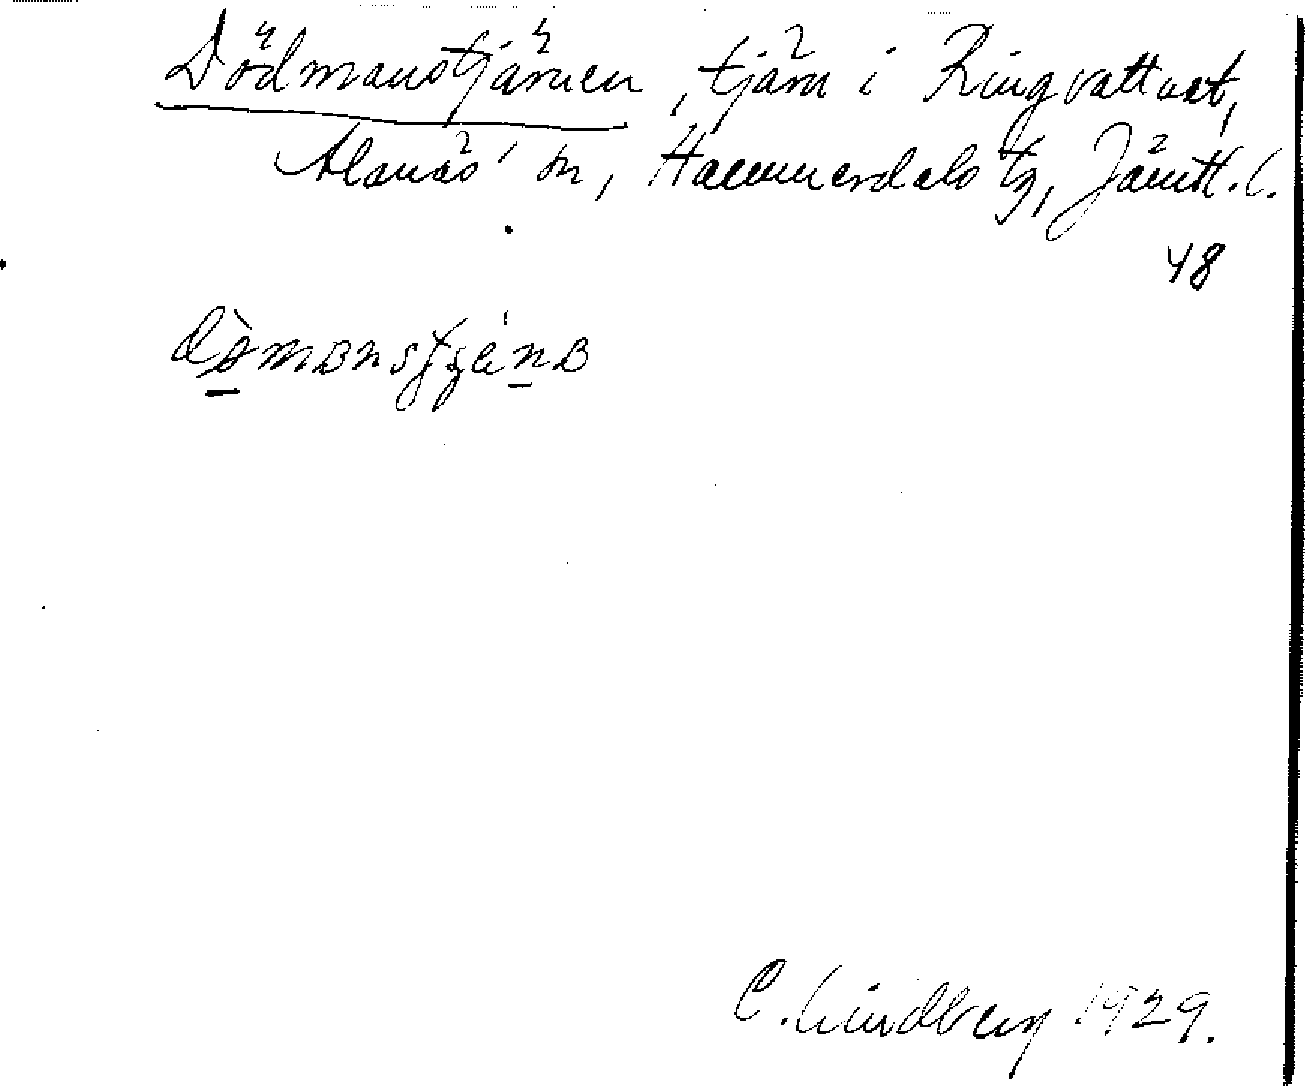 Dödmanstjärnen, tjärn i Ringvattnet,
Alanäs' sn, Hammerdals tg, Jämtl. l.
48
C. Lindberg 1929.